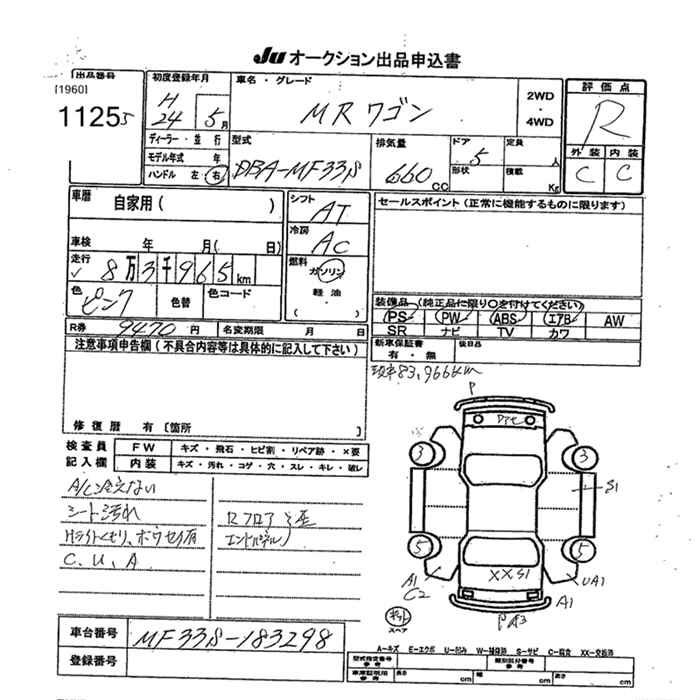 JU オークション出品申込書
出品番号
[1960]
1125
初度登録年月
H 24 5月
車名・グレード
MRワゴン
2WD
・
4WD
評価点
R
外装 内装
C C
ディーラー・並行
モデル年式 年
ハンドル 左・右
型式
DBA-MF33S
排気量
660cc
ドア
5
形状
定員
人
積載
Kg
車歴
自家用( )
車検 年 月( 日)
走行
8万3千965km
色
ピンク
色替
色コード
シフト
AT
冷房
AC
燃料
ガソリン
・
軽油
( )
セールスポイント(正常に機能するものに限ります)
装備品(純正品に限り○を付けてください)
PS PW ABS エアB AW
SR ナビ TV カワ
新車保証書
有・無
後日品
R券 9470円
名変期限 月 日
注意事項申告欄(不具合内容等は具体的に記入して下さい)
修復歴 有〔箇所 〕
現車83,966km
検査員
記入欄
FW キズ・飛石・ヒビ割・リペア跡・×要
内装 キズ・汚れ・コゲ・穴・スレ・キレ・破レ
A/C冷えない
シート汚れ
HライトくもりC、U、A
Rフロア
エンドパネル
F
3 3
S1
5 5
XXS1
A1
C2
UA1
A1
A3
スペア
車台番号
MF33S-183298
登録番号
A-キズ E-エクボ U-凹み W-補修跡 S-サビ C-腐食 XX-交換済
型式指定番号
参考
類別区分番号
参考
車庫証明用
参考
長さ cm 幅 cm 高さ cm